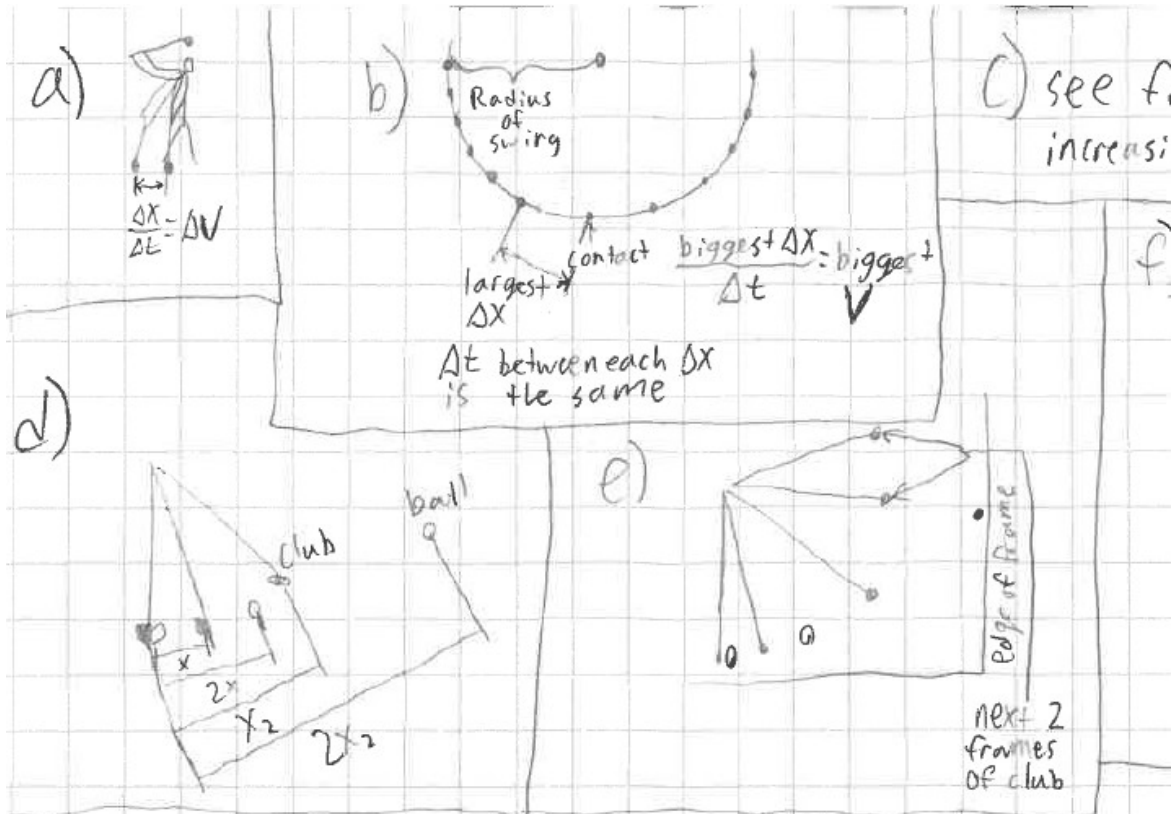 a)
ΔX
Δt = ΔV
b)
Radius
of
swing
contact
largest
ΔX
biggest ΔX
Δt
= biggest
V
Δt between each ΔX
is the same
c) see f
increasi
d)
ball
club
x
2x
X2
2X2
e)
edge of frame
next 2
frames
of club
f)